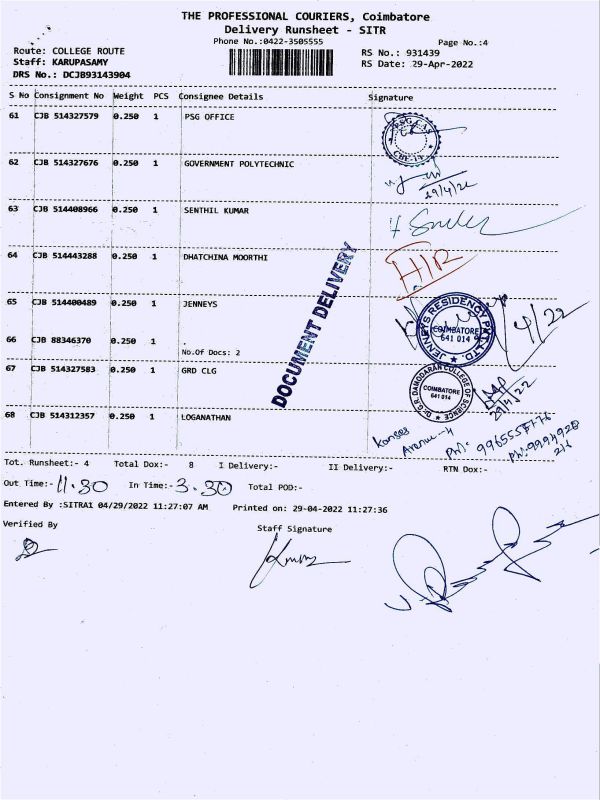 THE PROFESSIONAL COURIERS, Coimbatore
Delivery Runsheet - SITR
Phone No.:0422-3505555
Page No.:4
Route: COLLEGE ROUTE
RS No.: 931439
Staff: KARUPASAMY
RS Date: 29-Apr-2022
DRS No.: DCJB93143904
S No Consignment No Weight PCS Consignee Details Signature
61 CJB 514327579 0.250 1 PSG OFFICE
PSG CAS
CBE-14
62 CJB 514327676 0.250 1 GOVERNMENT POLYTECHNIC
29/4/22
63 CJB 514408966 0.250 1 SENTHIL KUMAR
64 CJB 514443288 0.250 1 DHATCHINA MOORTHI
H/R
DOCUMENT DELIVERY
65 CJB 514400489 0.250 1 JENNEYS
JENNEYS RESIDENCY PVT LTD.
COIMBATORE
641 014
66 CJB 88346370 0.250 1 .
No.Of Docs: 2
67 CJB 514327583 0.250 1 GRD CLG
Dr. G.R. DAMODARAN COLLEGE OF SCIENCE
COIMBATORE
641 014
29/4/22
68 CJB 514312357 0.250 1 LOGANATHAN
Avenue-4
Tot. Runsheet:- 4 Total Dox:- 8 I Delivery:- II Delivery:- RTN Dox:-
Out Time:- 11.30 In Time:- 3.30 Total POD:-
Entered By :SITRA1 04/29/2022 11:27:07 AM Printed on: 29-04-2022 11:27:36
Verified By
Staff Signature